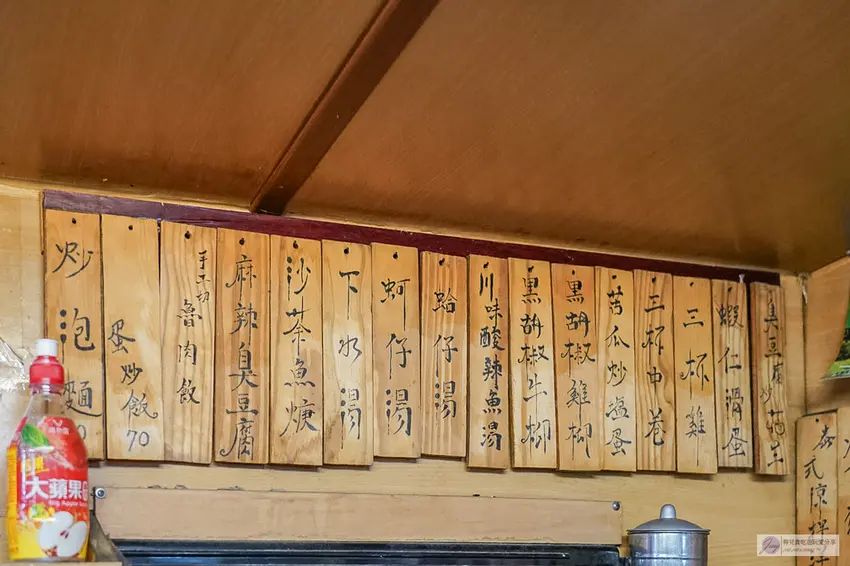 炒泡麵
蛋炒飯70
手工切魯肉飯
麻辣臭豆腐
沙茶魚焿
下水湯
蚵仔湯
蛤仔湯
川味酸辣魚湯
黑胡椒牛柳
黑胡椒雞柳
苦瓜炒塩蛋
三杯中卷
三杯雞
蝦仁滑蛋
臭豆腐炒
泰式涼拌
大蘋果